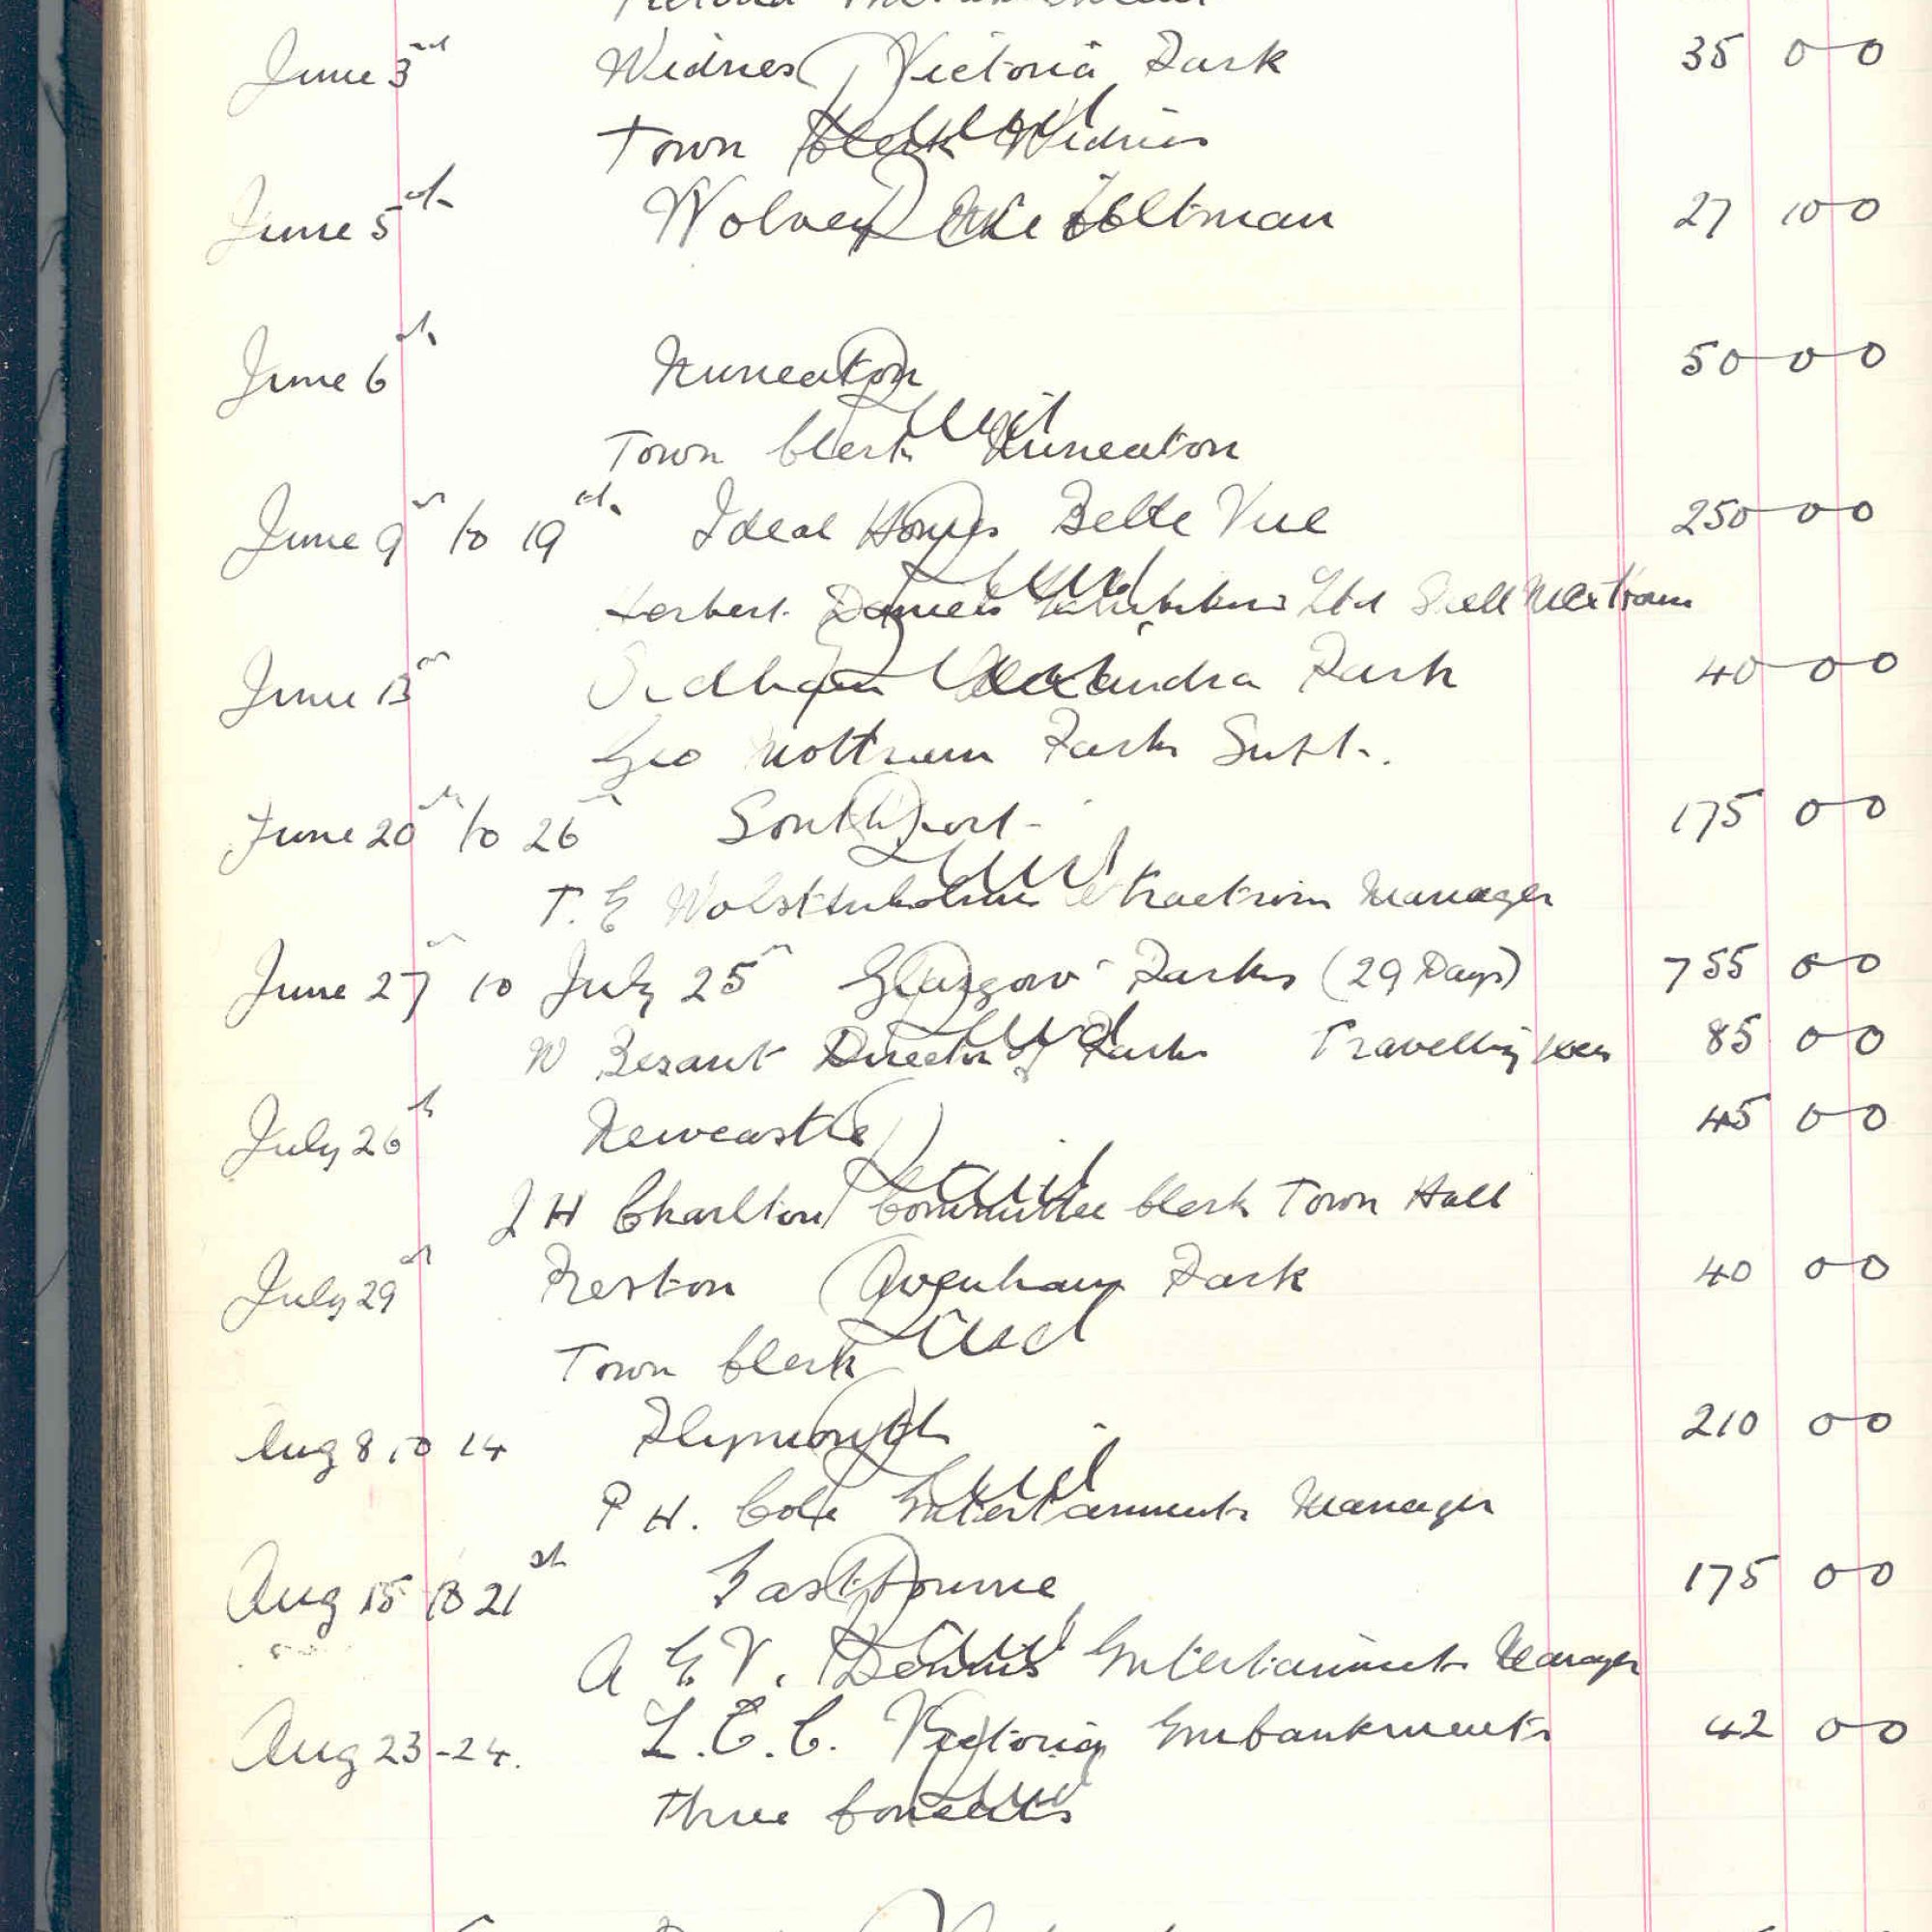 June 3rd Widnes Victoria Park 35 0 0
Paid
Town Clerk Widnes
June 5th 27 10 0
June 6th Nuneaton 50 0 0
Paid
Town Clerk Nuneaton
June 9th to 19th Ideal Homes Belle Vue 250 0 0
Paid
Herbert Daniels Exhibitions Ltd
June 13th Oldham Alexandra Park 40 0 0
Paid
Geo Mottram Parks Supt.
June 20th to 26th Southport 175 0 0
Paid
T. E Wolstenholme Attractions Manager
June 27th to July 25th Glasgow Parks (29 Days) 755 0 0
Paid
W Bezant Director of Parks Travelling 85 0 0
July 26th Newcastle 45 0 0
Paid
J H Charlton Committee Clerk Town Hall
July 29th Preston Avenham Park 40 0 0
Paid
Town Clerk
Aug 8 to 14 Plymouth 210 0 0
Paid
P H. Cole Entertainments Manager
Aug 15 to 21st Eastbourne 175 0 0
Paid
A E V. Dennis Entertainments Manager
Aug 23-24. L.C.C. Victoria Embankments 42 0 0
Paid
Three Concerts